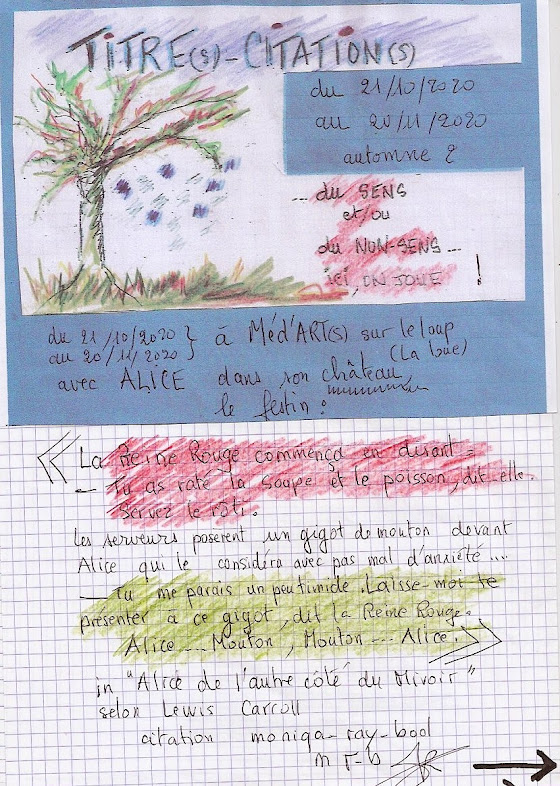 TITRE(S)-CITATION(S)
du 21/10/2020
au 20/11/2020
automne 2
... du SENS
et/ou
du NON-SENS ...
ici, ON JOUE !
du 21/10/2020 } à Méd'ART(s) sur le loup
au 20/11/2020 (La loue)
avec ALICE dans son château,
le festin :
« La Reine Rouge commença en disant =
_ Tu as raté la soupe et le poisson, dit-elle.
Servez le rôti.
Les serveurs posèrent un gigot de mouton devant
Alice qui le considéra avec pas mal d'anxiété ...
_ Tu me parais un peu timide. Laisse-moi te
présenter à ce gigot, dit la Reine Rouge.
Alice ... Mouton, Mouton ... Alice. »
in "Alice de l'autre côté du Miroir"
selon Lewis Carroll
citation moniqa-ray-bool
m r-b